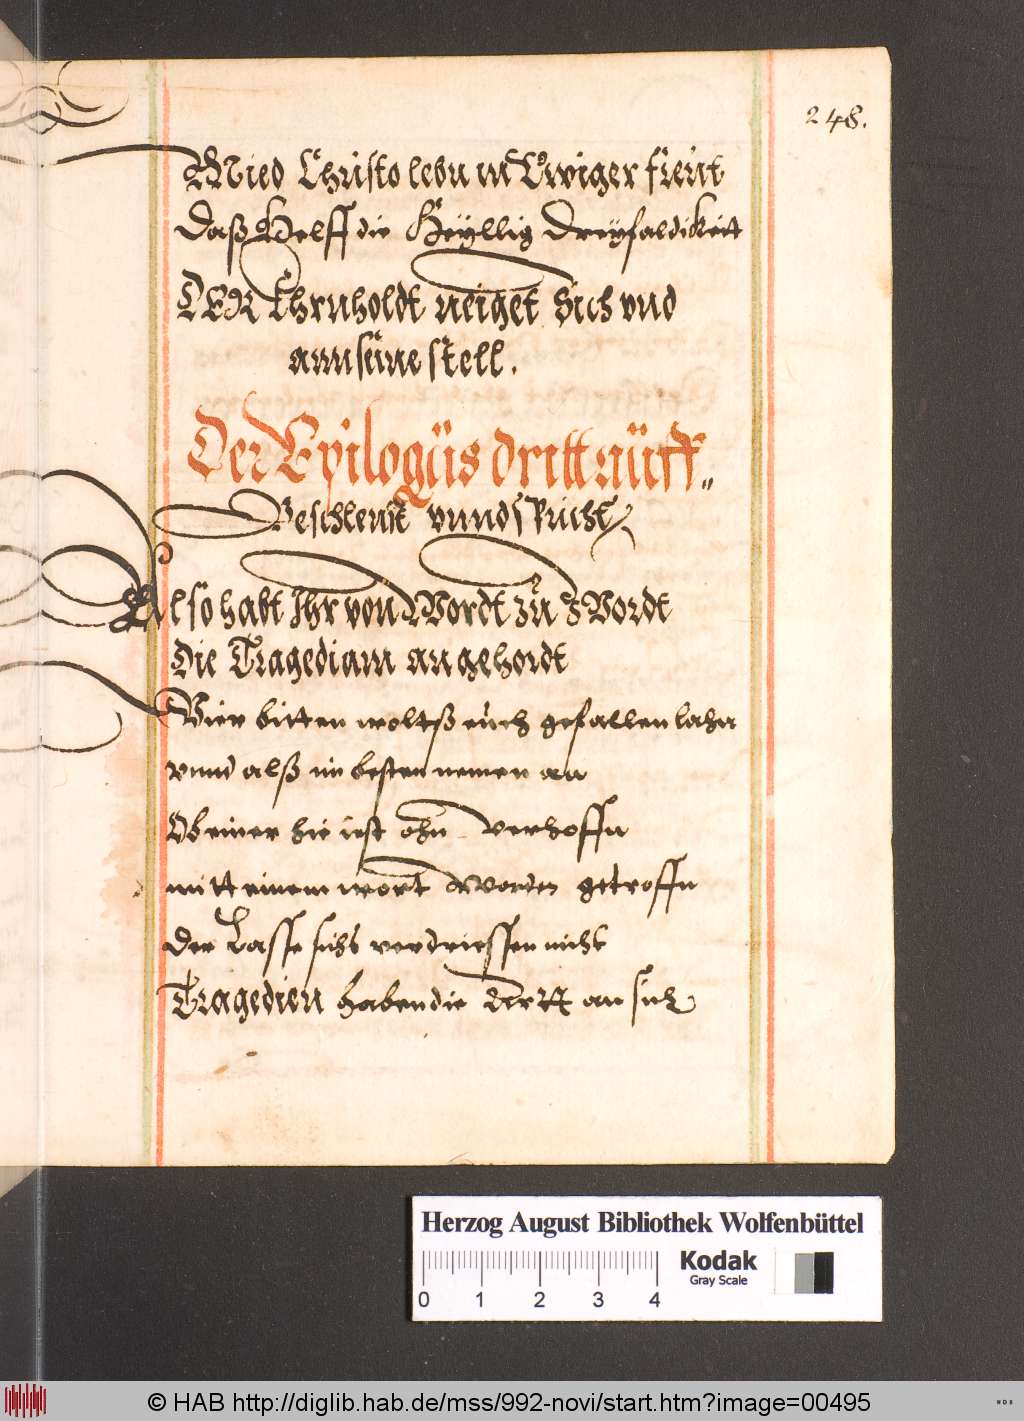 248.
Mied Christo lebn in Ewiger freüt
Daß Helff die Heÿllig Dreÿfaldikeitt
DER Ehrnholdt neiget sich vnd
ann seine stell.
Der Epilogüs dritt aüff„
Beschleust vnnd spricht
Also habt Ihr von Wordt zü Wordt
Die Tragediam angehordt
Wier bitten woltß eüch gefallen lahn
vnnd alß im besten nemen an
Ob einer hie ist ohn verhoffn
mitt einem wort worden getroffn
der Lasse sichs verdriessen nicht
Tragedien haben die Artt an sich
Herzog August Bibliothek Wolfenbüttel
Kodak
Gray Scale
0 1 2 3 4
© HAB http://diglib.hab.de/mss/992-novi/start.htm?image=00495